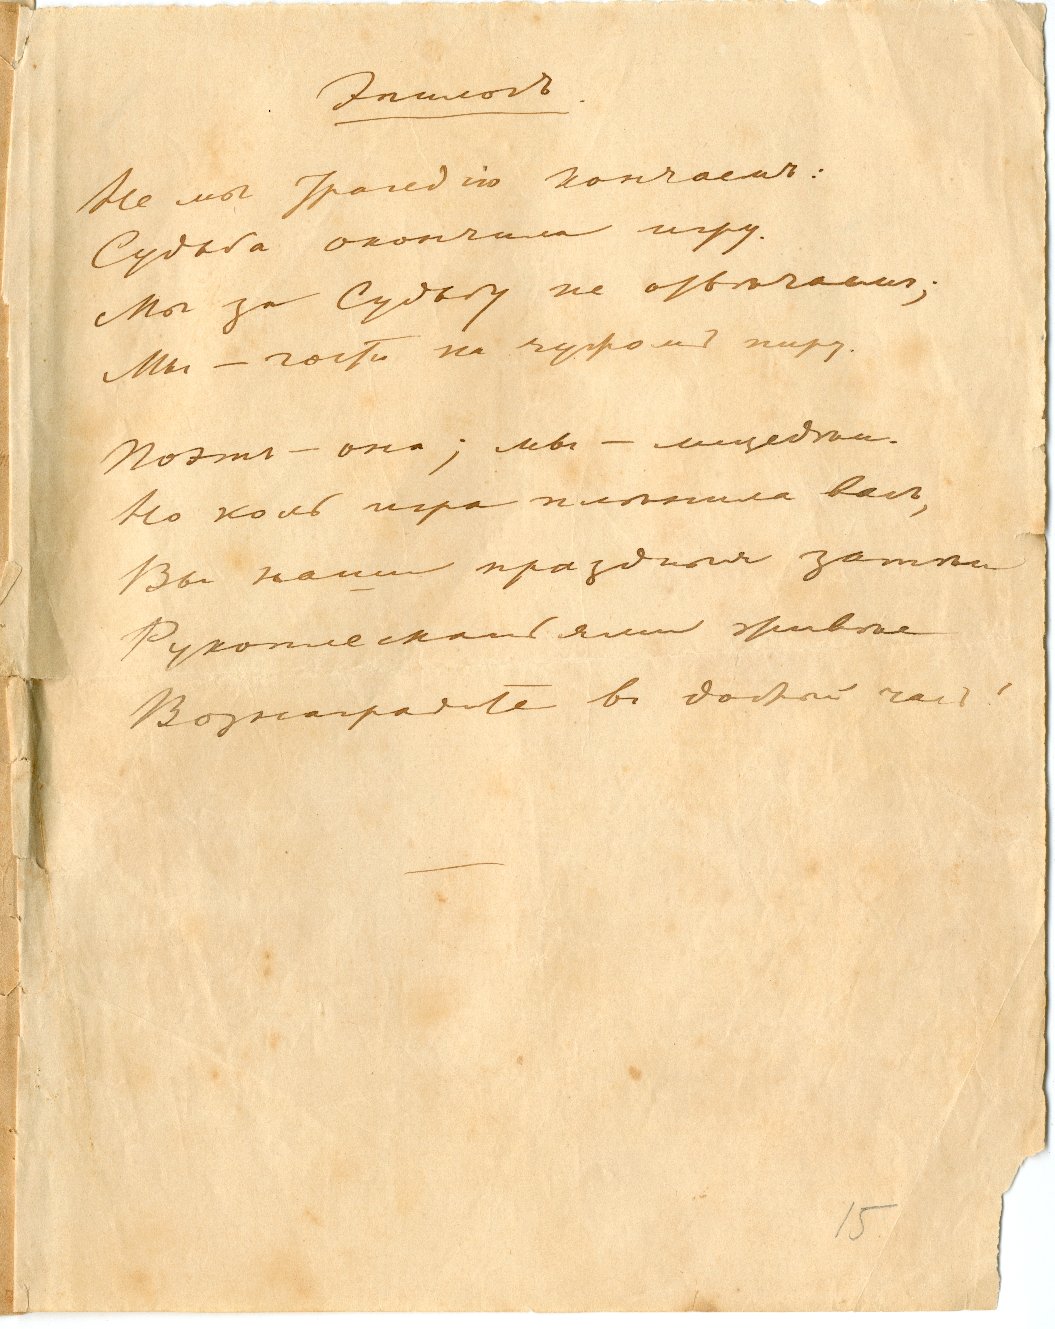 Эпилогъ.
Не мы трагедію кончаемъ:
Судьба окончила игру.
Мы за Судьбу не отвѣчаемъ;
Мы – гости на чужомъ пиру.
Поэтъ – она; мы – лицедѣи.
Но коль игра плѣнила васъ,
Вы наши праздныя затѣи
Рукоплесканьями живѣе
Вознаградите въ добрый часъ!
15